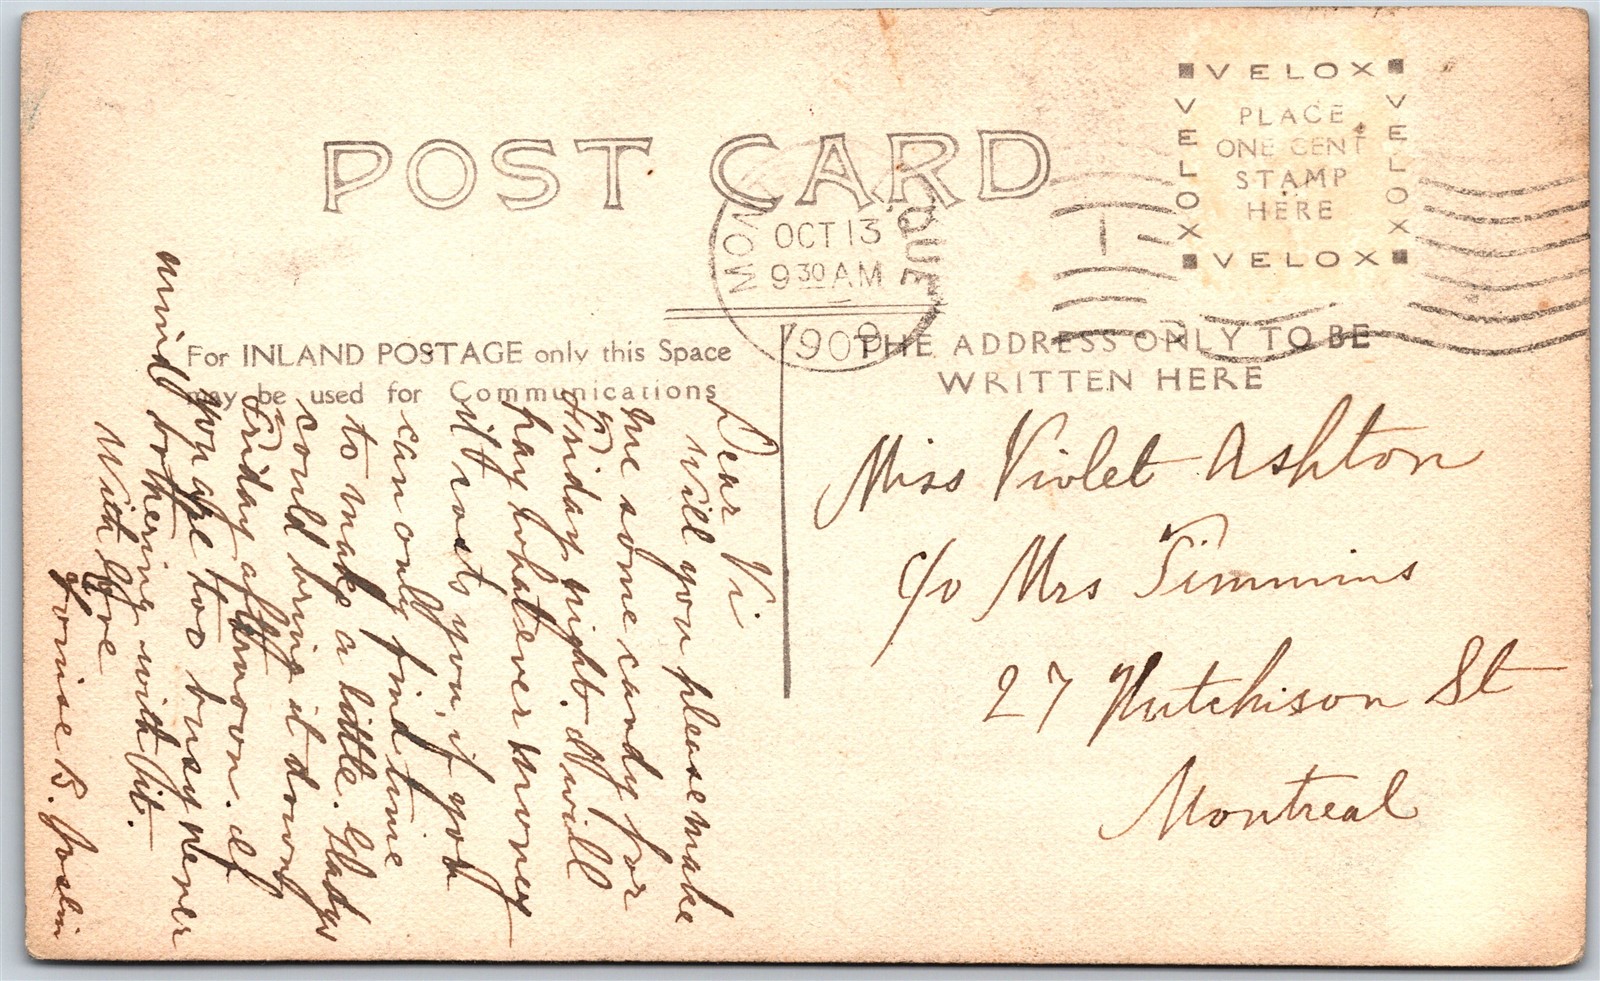 POST CARD
VELOX
VELOX
VELOX
VELOX
PLACE
ONE CENT
STAMP
HERE
MON QUE
OCT 13
9 30 AM
1909
For INLAND POSTAGE only this Space
may be used for Communications
THE ADDRESS ONLY TO BE
WRITTEN HERE
Dear Vi
Will you please make
me some candy for
Friday night. I will
pay whatever money
it costs you, if you
can only find time
to make a little. Gladys
could bring it down
Friday afternoon. If
you are too busy never
mind bothering with it.
With love
Louise B. Joslin
Miss Violet Ashton
c/o Mrs Timmins
27 Hutchison St
Montreal